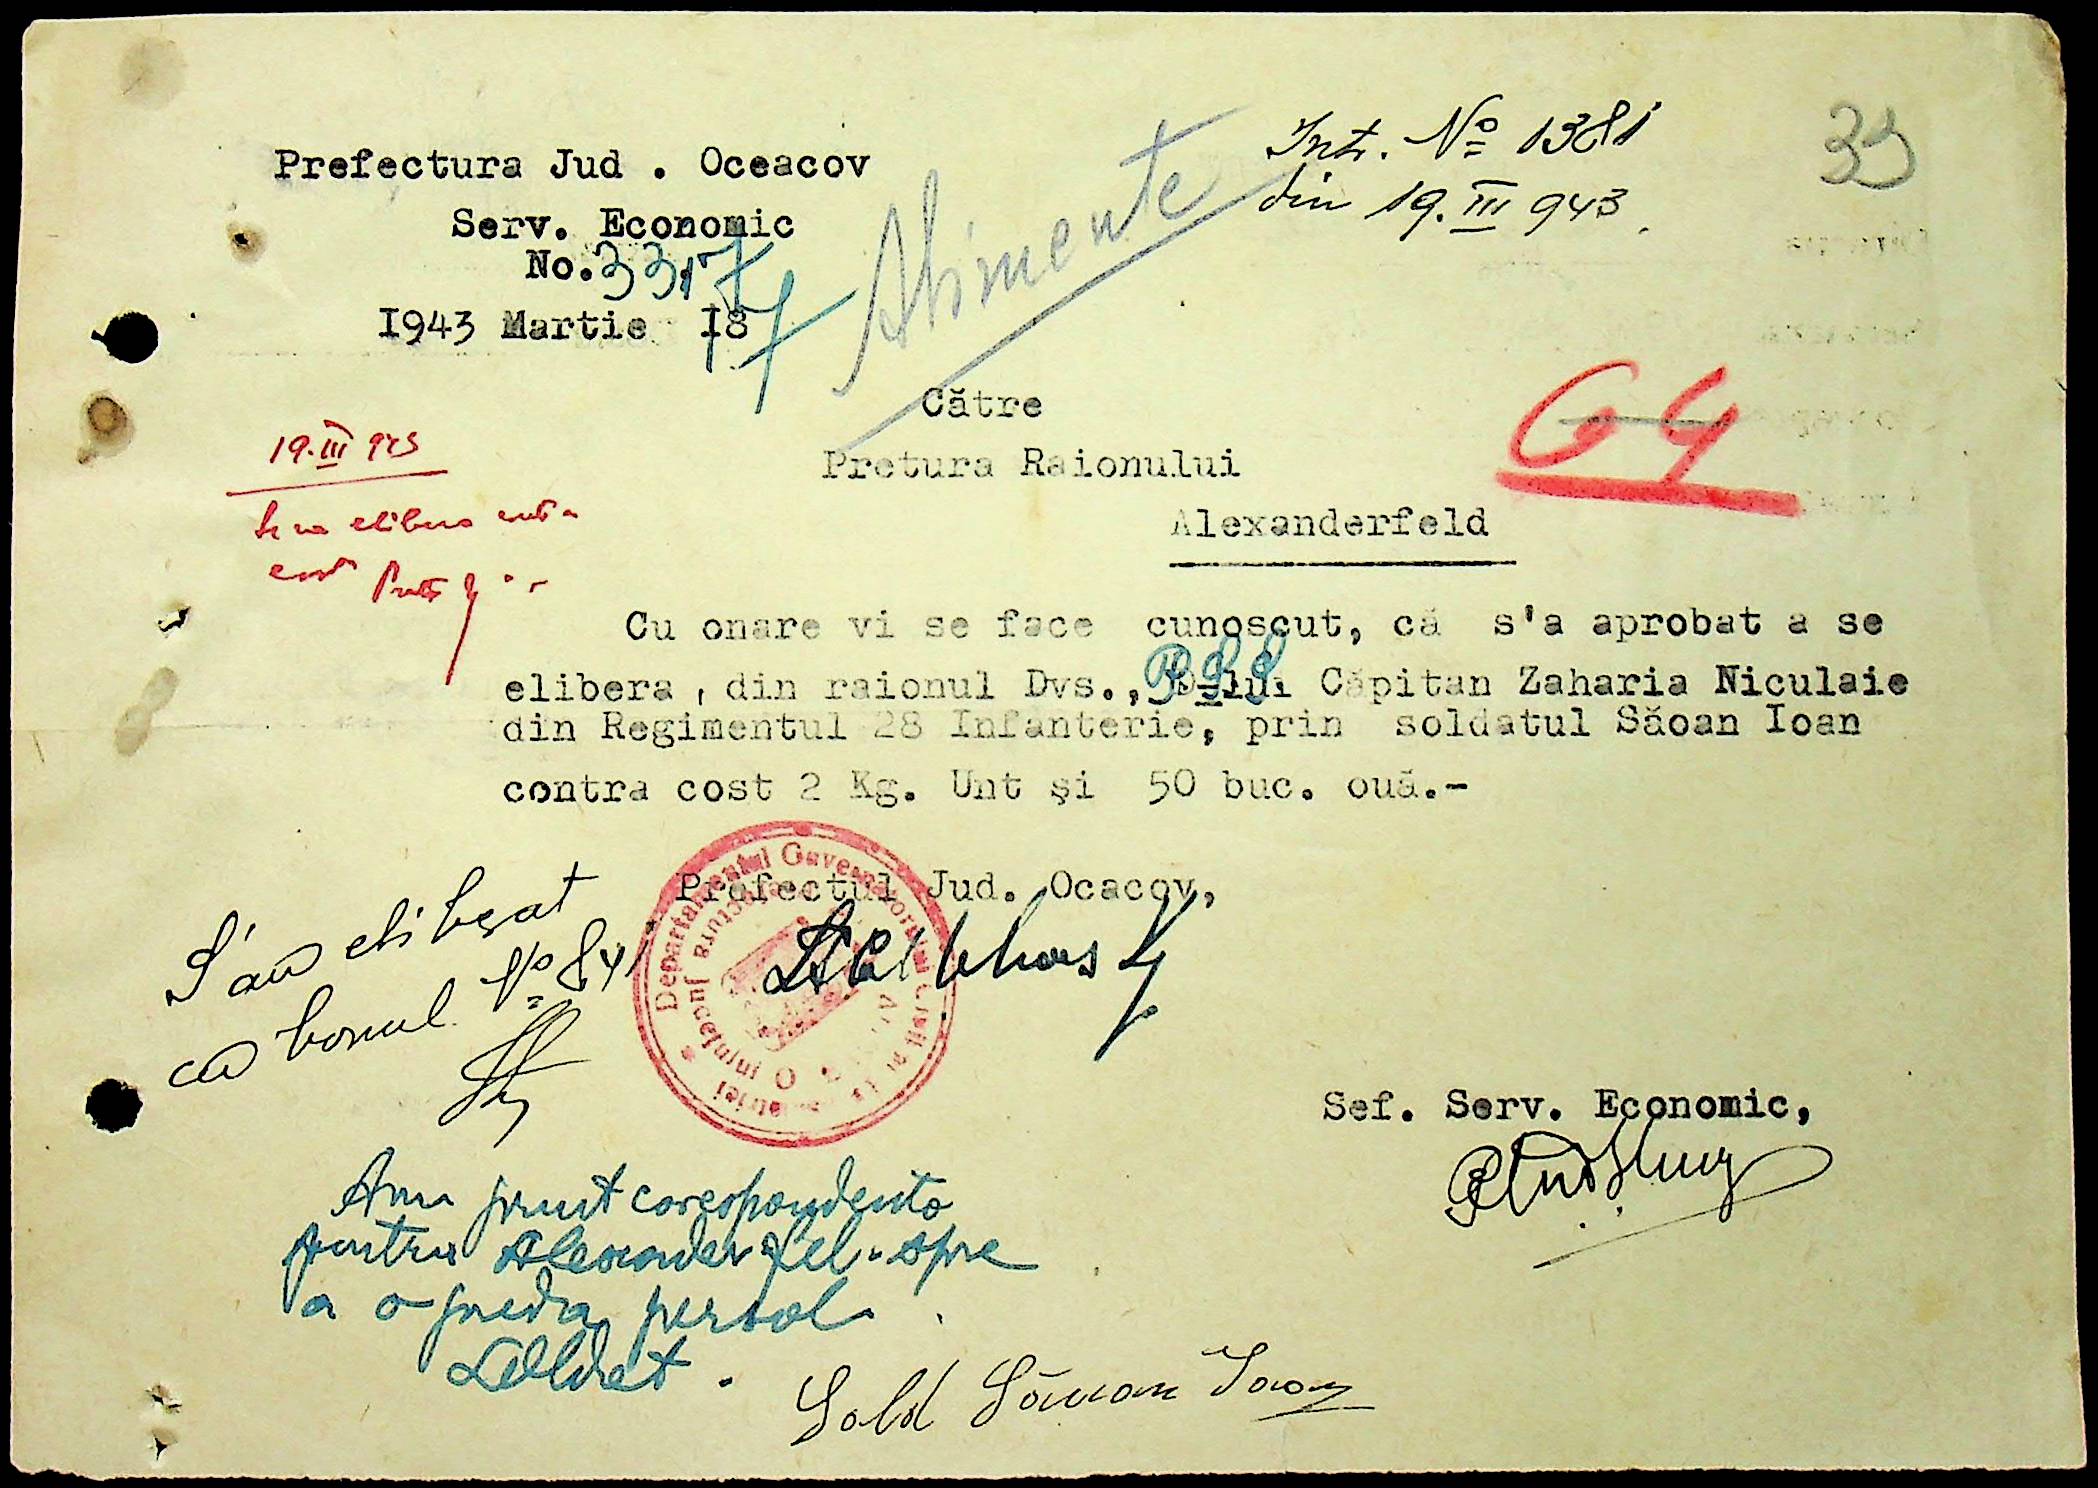 Prefectura Jud . Oceacov
Serv. Economic
No. 3317
I943 Martie I8
Alimente
Int. Nº 1381
din 19. III 943.
33
Către
Pretura Raionului
Alexanderfeld
64
19. III 943
Cu onare vi se face cunoscut, că s'a aprobat a se
elibera, din raionul Dvs., D-lui Căpitan Zaharia Niculaie
din Regimentul 28 Infanterie, prin soldatul Săoan Ioan
contra cost 2 Kg. Unt și 50 buc. ouă.-
Prefectul Jud. Ocacov,
Departamentul Guvernorul Civil al Transnistriei
Prefectura Județului O
S'au eliberat
cu bonul Nº 841
Sef. Serv. Economic,
Am primit corespondenta
pentru Alexanderfel. spre
a o preda persoal
Sold Săuan Ioan